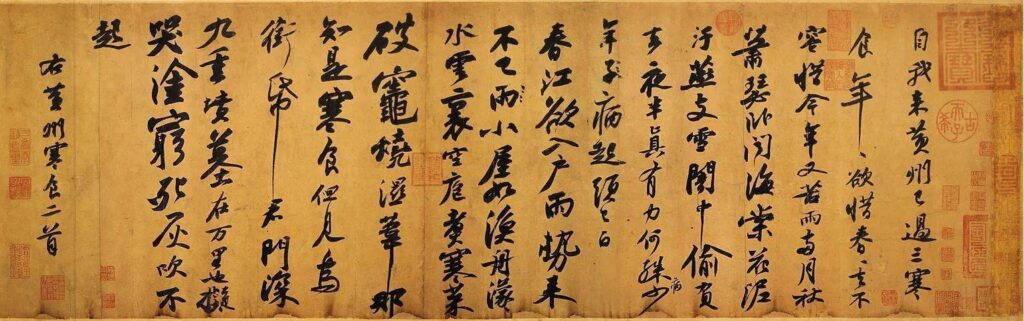 自我來黄州已過三寒
食年〻欲惜春〻去不
容惜今年又苦雨兩月秋
蕭瑟卧聞海棠花泥
汙燕支雪闇中偷負
去夜半真有力何殊病少
年子病起頭已白
春江欲入户雨勢来
不已雨小屋如漁舟濛〻
水雲裏空庖煮寒菜
破竈燒濕葦那
知是寒食但見烏
銜帋君門深
九重墳墓在万里也擬
哭塗窮死灰吹不
起
右黄州寒食二首